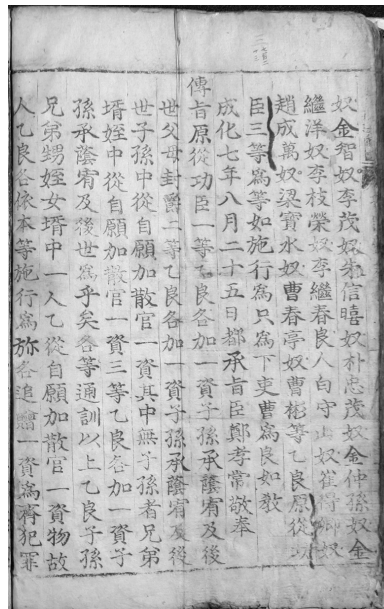 奴金智奴李茂奴朱信暿奴朴忠茂奴金仲孫奴金
繼洋奴李枝榮奴李繼春良人白守山奴崔將鄕奴
趙成萬奴梁寶水奴曹春亭奴曹彬等乙良原從功
臣三等爲等如施行爲只爲下吏曹爲良如敎
成化七年八月二十五日都承旨臣鄭孝常敬奉
傳旨原從功臣一等乙良各加一資子孫承蔭宥及後
世父母封爵二等乙良各加一資子孫承蔭宥及後
世子孫中從自願加散官一資其中無子孫者兄弟
壻姪中從自願加散官一資三等乙良各加一資子
孫承蔭宥及後世爲乎矣各等通訓以上乙良子孫
兄弟甥姪女壻中一人乙從自願加散官一資物故
人乙良各依本等施行爲㫆各追贈一資爲齊犯罪